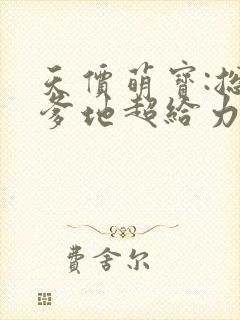 天價萌寶:
爹地超給力
費舍尔